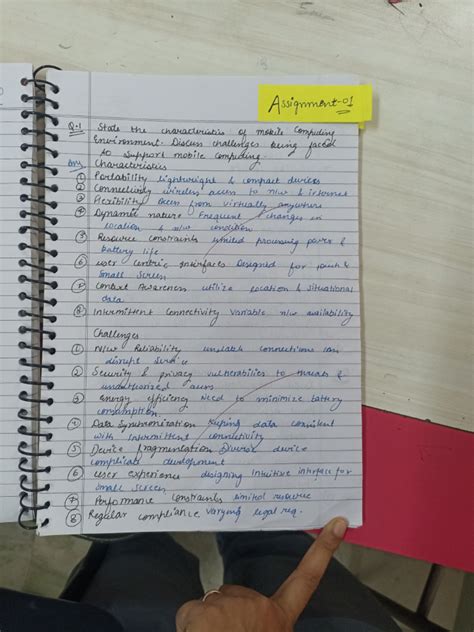 Assignment-01
Q.1 State the characteristics of mobile Computing
Environment. Discuss challenges being faced
to support mobile computing.
Ans Characteristics
① Portability Lightweight & compact devices
② Connectivity wireless access to n/w & internet
③ Flexibility Access from virtually anywhere
④ Dynamic nature Frequent changes in
location & n/w condition
⑤ Resource constraints limited processing power &
battery life
⑥ User centric Interfaces Designed for touch &
small screen
⑦ Context Awareness utilize location & situational
data
⑧ Intermittent Connectivity variable n/w availability
Challenges
① N/w Reliability unstable connections can
disrupt service
② Security & privacy vulnerabilities to threats &
unauthorized access
③ Energy efficiency need to minimize battery
consumption.
④ Data Synchronization keeping data consistent
with intermittent connectivity
⑤ Device fragmentation Diverse device
complicate development
⑥ User experience designing Intuitive interface for
small screen
⑦ Performance constraints limited resource
⑧ Regular compliance varying legal req.